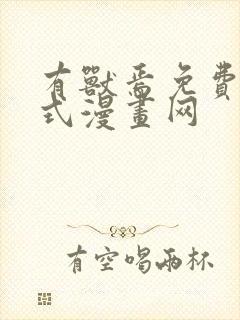 有獸焉免費
式漫畫网
有空喝兩杯